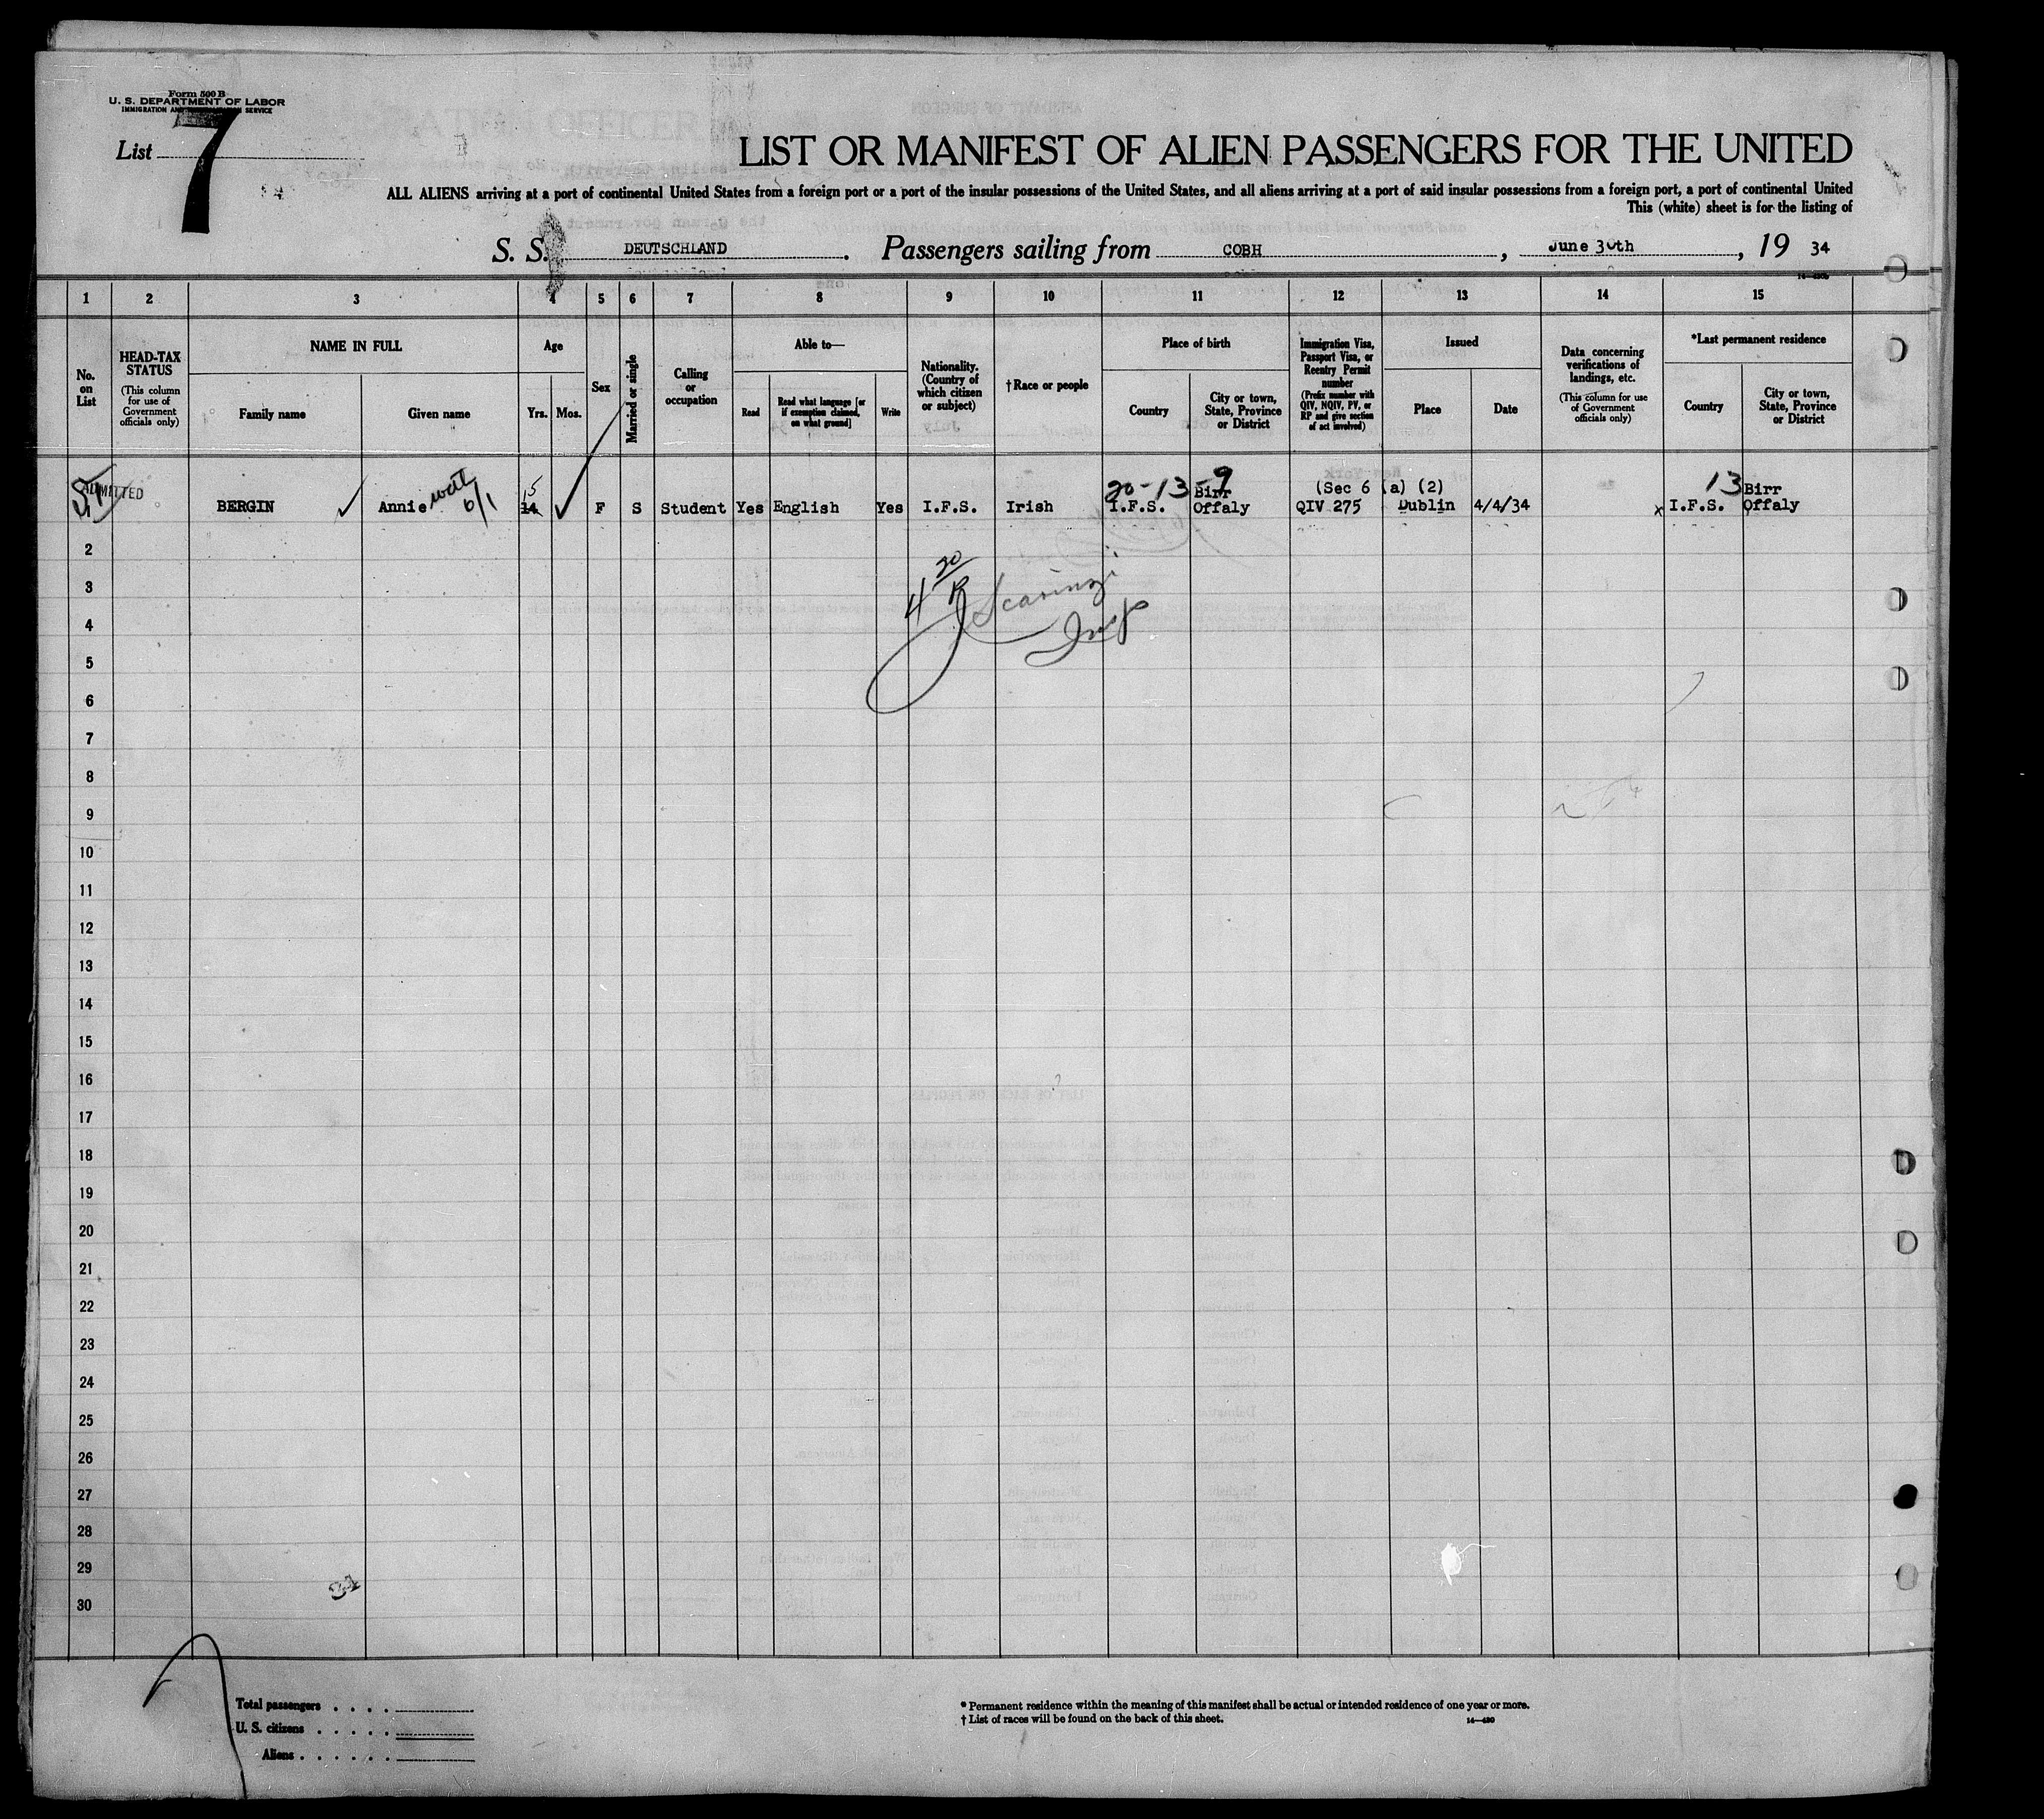 Form 500 B
U. S. DEPARTMENT OF LABOR
IMMIGRATION AND SERVICE
List 7
LIST OR MANIFEST OF ALIEN PASSENGERS FOR THE UNITED
ALL ALIENS arriving at a port of continental United States from a foreign port or a port of the insular possessions of the United States, and all aliens arriving at a port of said insular possessions from a foreign port, a port of continental United
This (white) sheet is for the listing of
S. S. DEUTSCHLAND. Passengers sailing from COBH, June 30th, 19 34
1 2 3 4 5 6 7 8 9 10 11 12 13 14 15
No. on List
HEAD-TAX STATUS
(This column for use of Government officials only)
NAME IN FULL
Family name
Given name
Age
Yrs. Mos.
Sex
Married or single
Calling or occupation
Able to—
Read
Read what language [or if exemption claimed, on what ground]
Write
Nationality. (Country of which citizen or subject)
† Race or people
Place of birth
Country
City or town, State, Province or District
Immigration Visa, Passport Visa, or Reentry Permit number
(Prefix number with QIV, NQIV, PV, or RP and give section of act involved)
Issued
Place
Date
Data concerning verifications of landings, etc.
(This column for use of Government officials only)
*Last permanent residence
Country
City or town, State, Province or District
15 20-13-9 (Sec 6 (a) (2) 13 Birr
ADMITTED BERGIN Annie 6/1 14 F S Student Yes English Yes I.F.S. Irish I.F.S. Birr Offaly QIV 275 Dublin 4/4/34 x I.F.S. Offaly
2
3
4 20
Scarinzi
4
Insp
5
6
7
8
9
10
11
12
13
14
15
16
17
18
19
20
21
22
23
24
25
26
27
28
29
30
Total passengers . . . .
U. S. citizens . . . . .
Aliens . . . . . .
* Permanent residence within the meaning of this manifest shall be actual or intended residence of one year or more.
† List of races will be found on the back of this sheet.
14—480